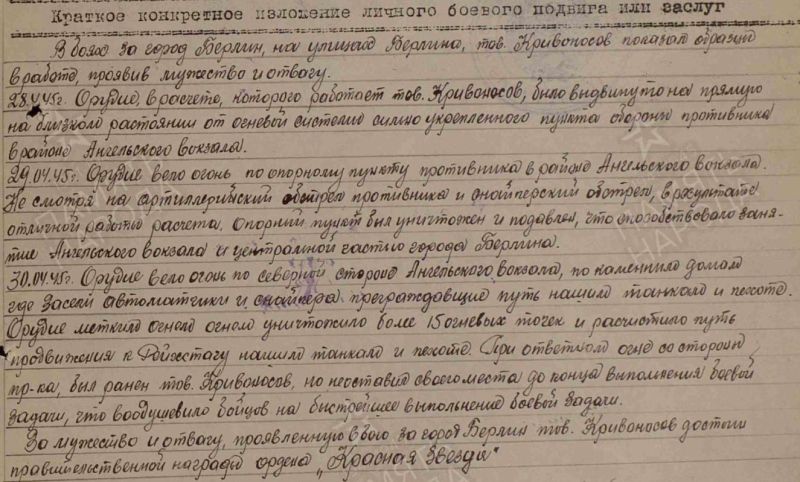 Краткое конкретное изложение личного боевого подвига или заслуг
В боях за город Берлин, на улицах Берлина, тов. Кривоносов показал образцы
в работе, проявив мужество и отвагу.
28.4.45г. Орудие, в расчете, которого работает тов. Кривоносов, было выдвинуто на прямую
на близком растоянии от огневой системы сильно укрепленного пункта обороны противника
в районе Ангельского вокзала.
29.04.45г. Орудие вело огонь по опорному пункту противника в районе Ангельского вокзала.
Не смотря на артиллерийский обстрел противника и снайперский обстрел, в результате
отличной работы расчета, опорный пункт был уничтожен и подавлен, что способствовало заня-
тию Ангельского вокзала и центральной частью города Берлина.
30.04.45г. Орудие вело огонь по северной стороне Ангельского вокзала, по каменным домам
где засели автоматчики и снайпера преграждавшие путь нашим танкам и пехоте.
Орудие метким огнем огнем уничтожило более 15 огневых точек и расчистило путь
продвижения к Рейхстагу нашим танкам и пехоте. При ответном огне со стороны
пр-ка, был ранен тов. Кривоносов, но неоставил своего места до конца выполнения боевой
задачи, что воодушевило бойцов на быстрейшее выполнение боевой задачи.
За мужество и отвагу, проявленную в бою за город Берлин тов. Кривоносов достоин
правительственной награды ордена „Красная Звезда"